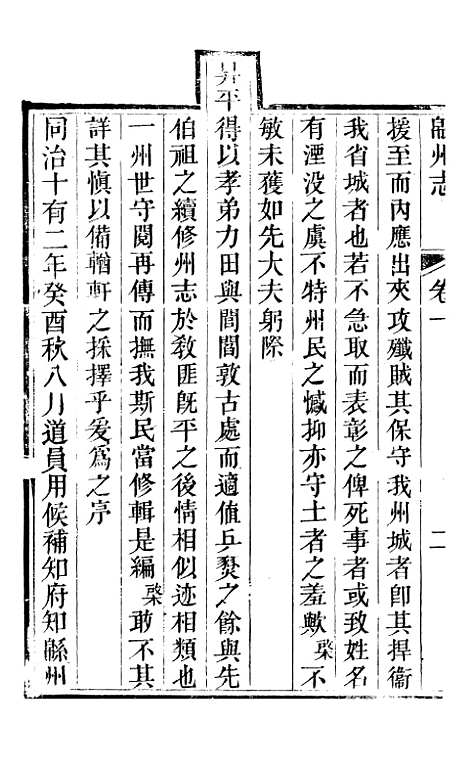 州志
卷一
二
援至而內應出夾攻殲賊其保守我州城者卽其捍衞
我省城者也若不急取而表彰之俾死事者或致姓名
有湮没之虞不特州民之憾抑亦守土者之羞歟棨不
敏未獲如先大夫躬際
昇平得以孝弟力田與閭閻敦古處而適值兵燹之餘與先
伯祖之續修州志於敎匪旣平之後情相似迹相類也
一州世守閱再傳而撫我斯民當修輯是編棨敢不其
詳其愼以備輶軒之採擇乎爰爲之序
同治十有二年癸酉秋八月道員用候補知府知緜州